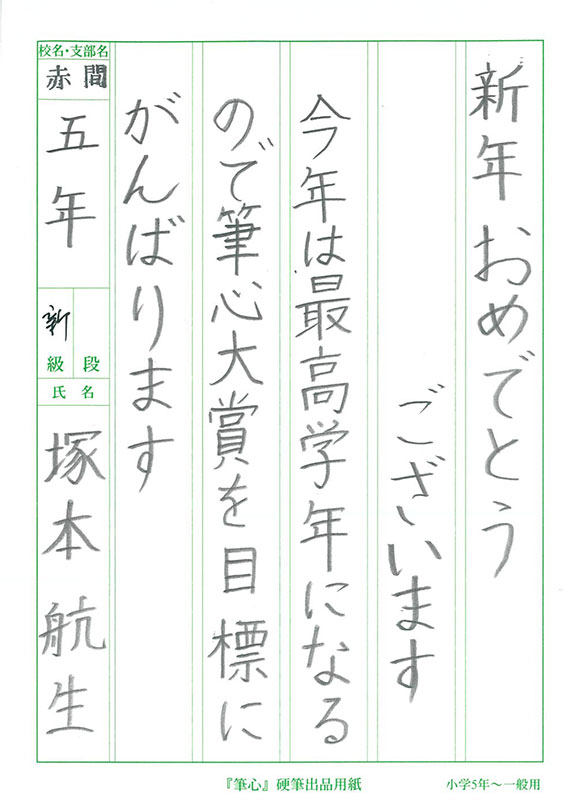 新年おめでとう
ございます
今年は最高学年になる
ので筆心大賞を目標に
がんばります
校名・支部名
赤間
五年
新
級 段
氏名
塚本航生
『筆心』硬筆出品用紙
小学5年〜一般用